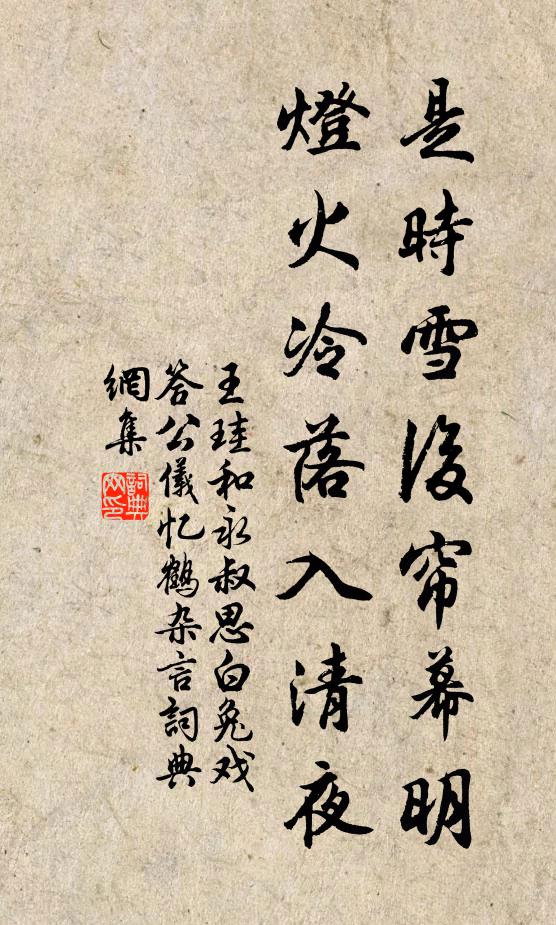 是時雪後帘幕明
燈火冷落入清夜
王珪和永叔思白兔戏
答公儀忆鶴杂言詞典
網集
詞典
網印